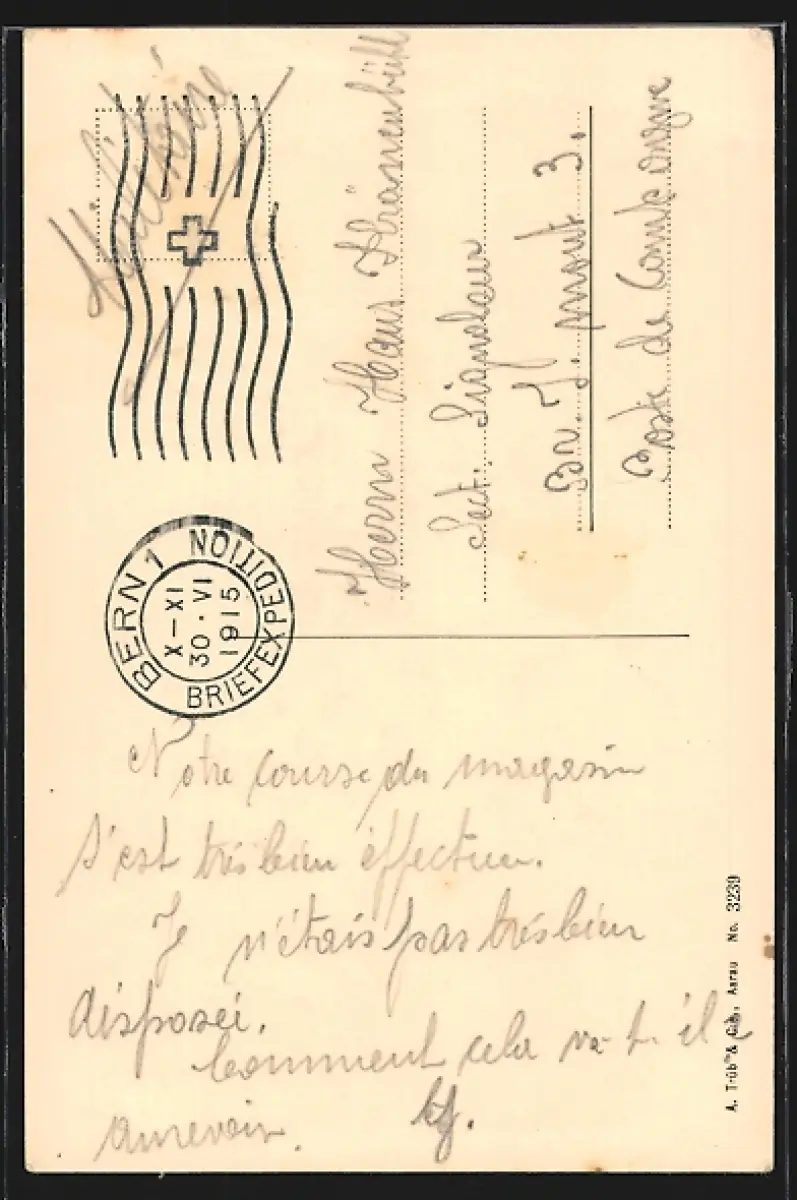 Militaire
BERN 1 BRIEFEXPEDITION
X–XI
30.VI
1915
Herrn Hans
Sect. Signaleur
Br. I. mont 3.
Poste de Campagne
Notre course du magasin
s'est très bien effectuée.
Je n'étais pas très bien
disposée.
Comment cela va-t-il
aurevoir.
A. Trüb & Cie., Aarau No. 3239